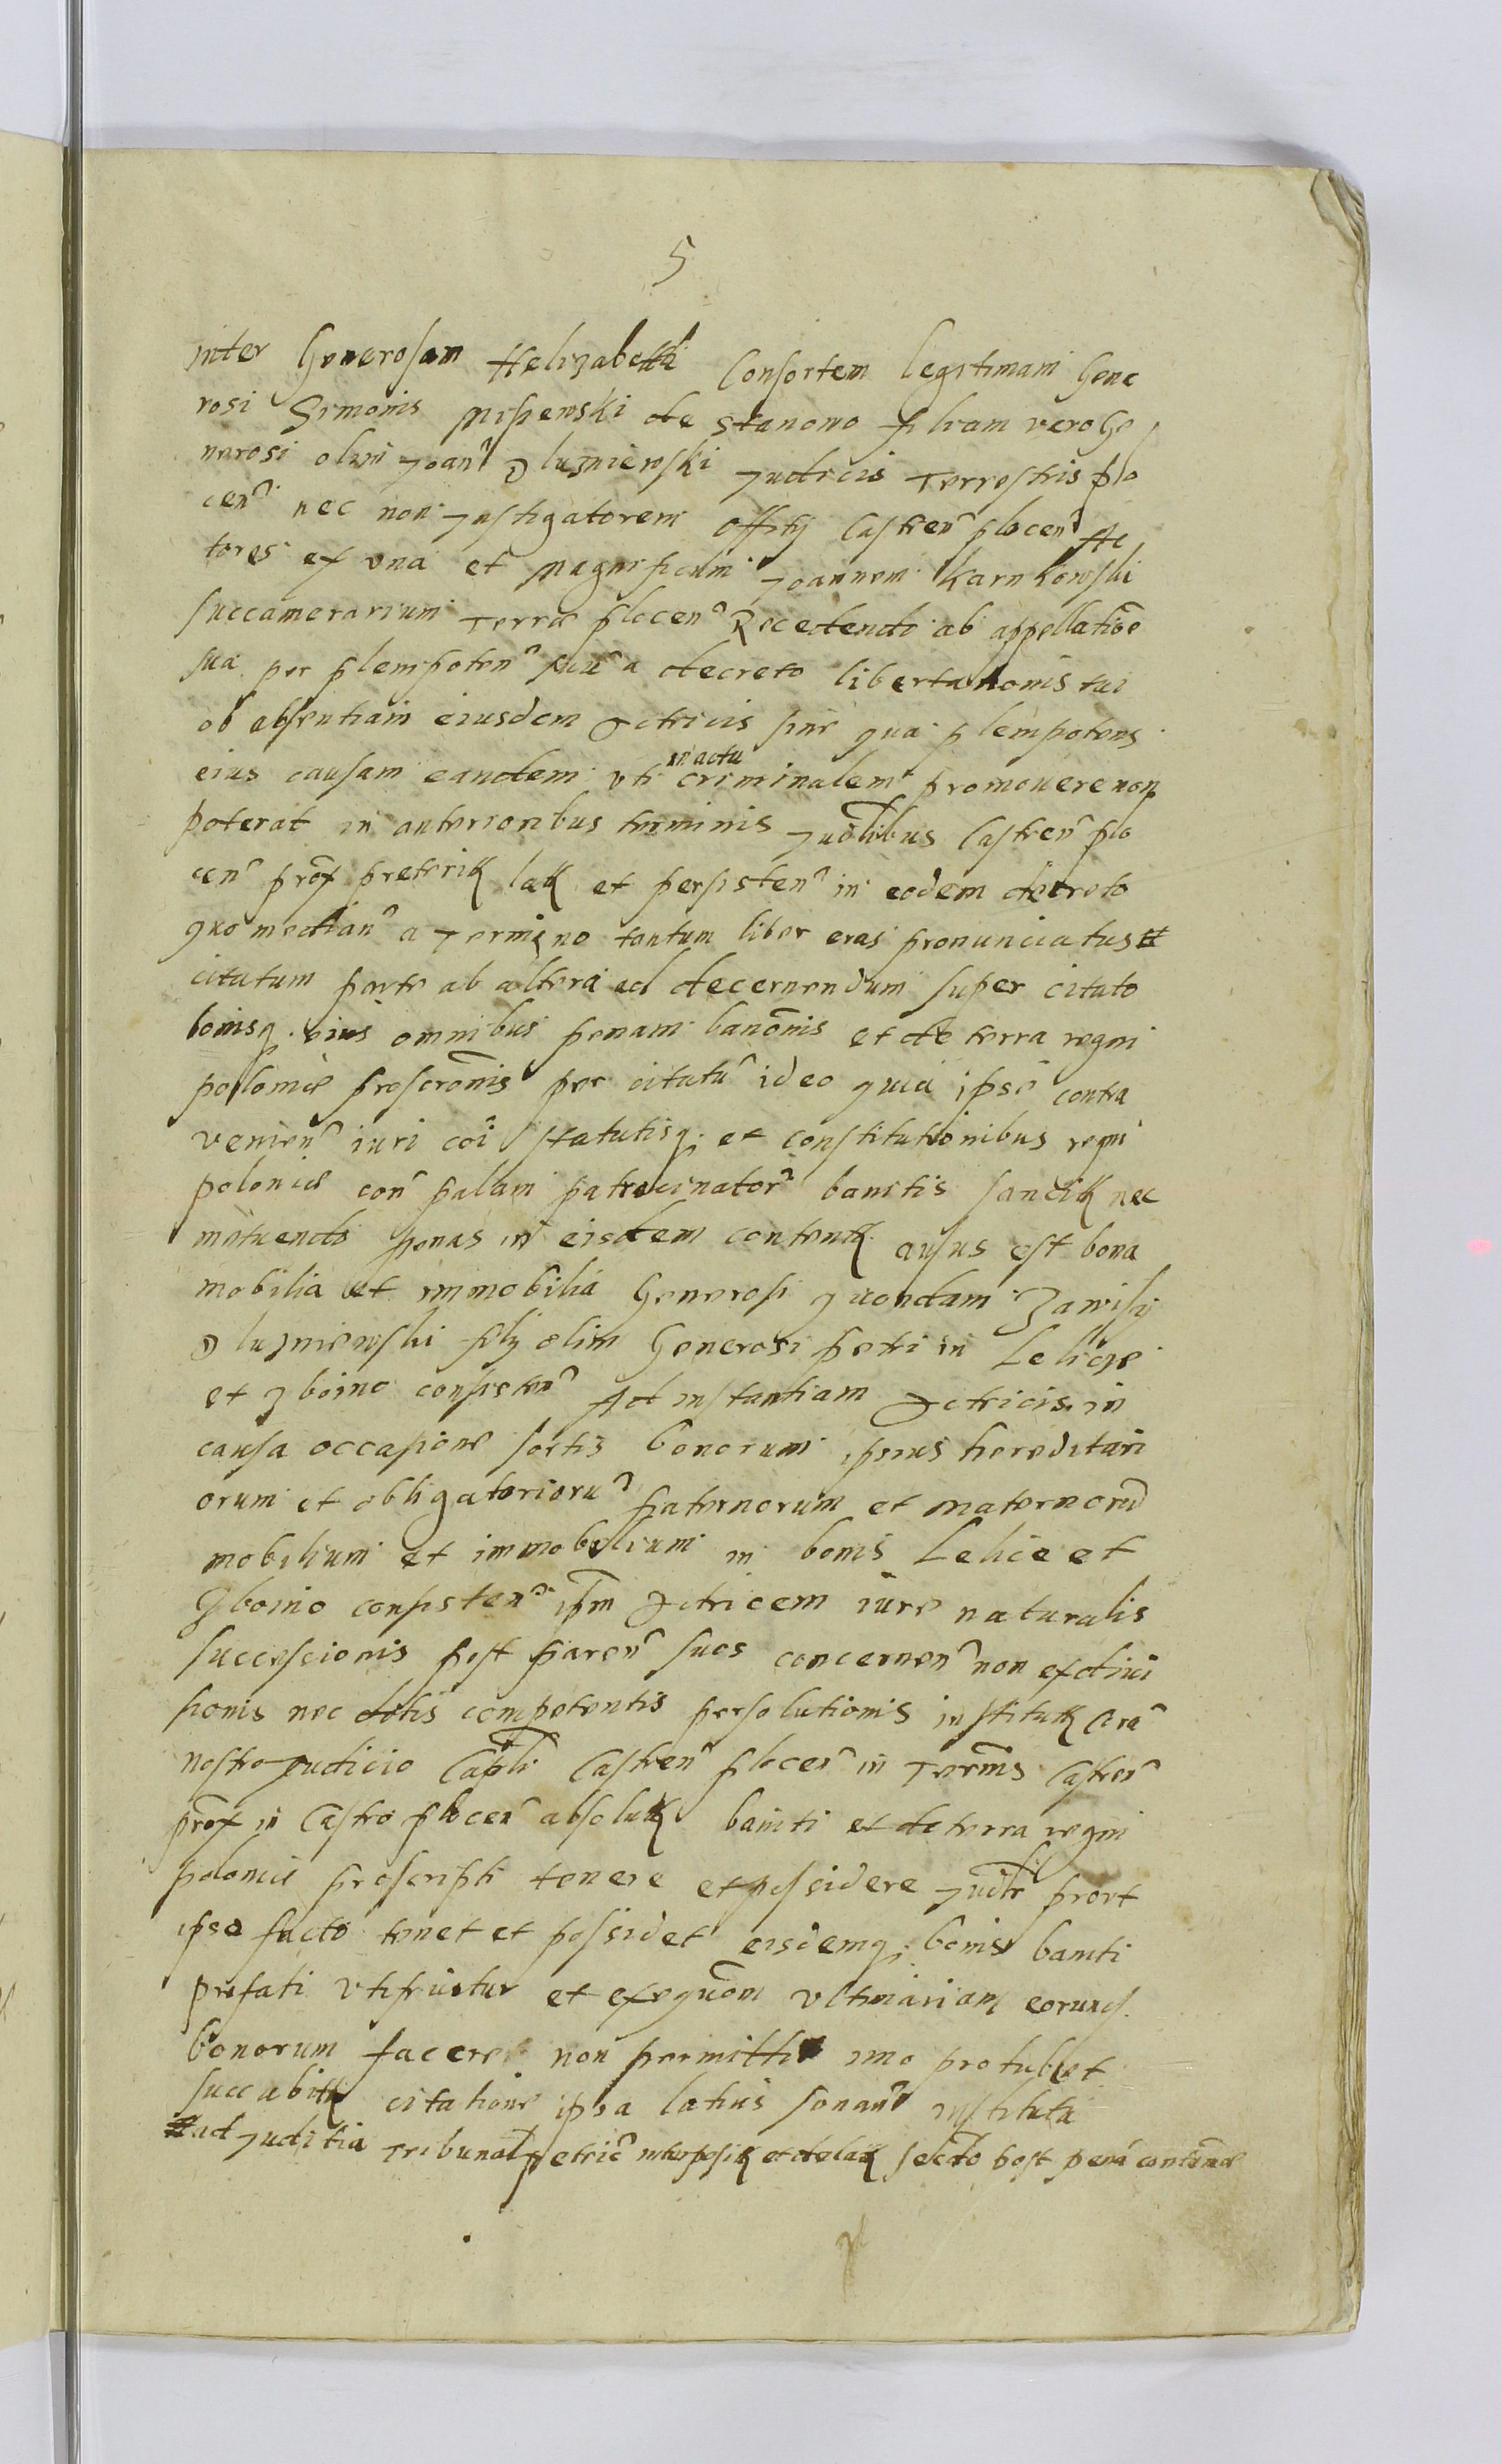 5
inter Generosam Helizabeth Consortem legitimam Gene
rosi Simonis Misſewski de Stanowo filiam vero Ge
nerosi olim Joan̑ Dluzniewski Judicis Terrestris plo
cen̑ nec non Instigatorem offitij Castren̑ plocen̑ Ac
tores ex vna et Magnificum Joannem Karnkowski
succamerarium Terræ plocen̑ Recedendo ab appellatiõe
sua per plenipoten̑ suũ a decreto libertationis tui
ob absentiam eiusdem Actricis sine qua plenipotens
eius causam eandem vti in actu criminalem promouere non
poterat in anterioribus terminis Judĩlibus Castren̑ plo
cen̑ prox preteritꝶ latꝶ et persisten̑ in eodem decreto
quo median̑ a Termino tantum liber eras pronunciatus #
citatum parte ab altera ad decernendum super citato
bonisq. eius omnibus penam banõnis et de terra regni
poloniæ proscrõnis per citatũ ideo quia ipse contra
venien̑ iuri cõi statutisq; et constitutionibus regni
poloniæ con̑ palam patrocinatoȓ banitis sancitꝶ nec
metuendo penas in eisdem contentꝶ ausus est bona
mobilia et immobilia Generosi quondam Zawisij
Dluzniewski filij olim Generosi petri in Lelice
et gboino consisten̑ Ad instantiam Actricis in
causa occasione sortis bonorum ipsius hereditari
orum et obligatoriorũ paternorum et maternorũ
mobilium et immobilium in bonis Lelice et
Gboino consisten̑ ipm̃ Actricem iure naturalis
successionis post paren̑ suos concernen̑ non exdiui
sionis nec dotis competentis persolutionis institutꝶ Corã
nostro Judicio Capĩtli Castren̑ plocen̑ in Termĩs Castren̑
prox in Castro plocen̑ absolutꝶ baniti et de terra regni
poloniæ proscripti tenere et possidere Judĩr prout
ipso facto tenet et possidet eisdemq; bonis baniti
prefati vtifruitur et exequõm vltimariam eorund.
bonorum facere non permittit imo pro tuk let
succubitꝶ citatione ipsa latius sonan̑ instituta
# ad Juditia Tribunal petric̑ interpositꝶ et delatꝶ secdo post penã contentæ